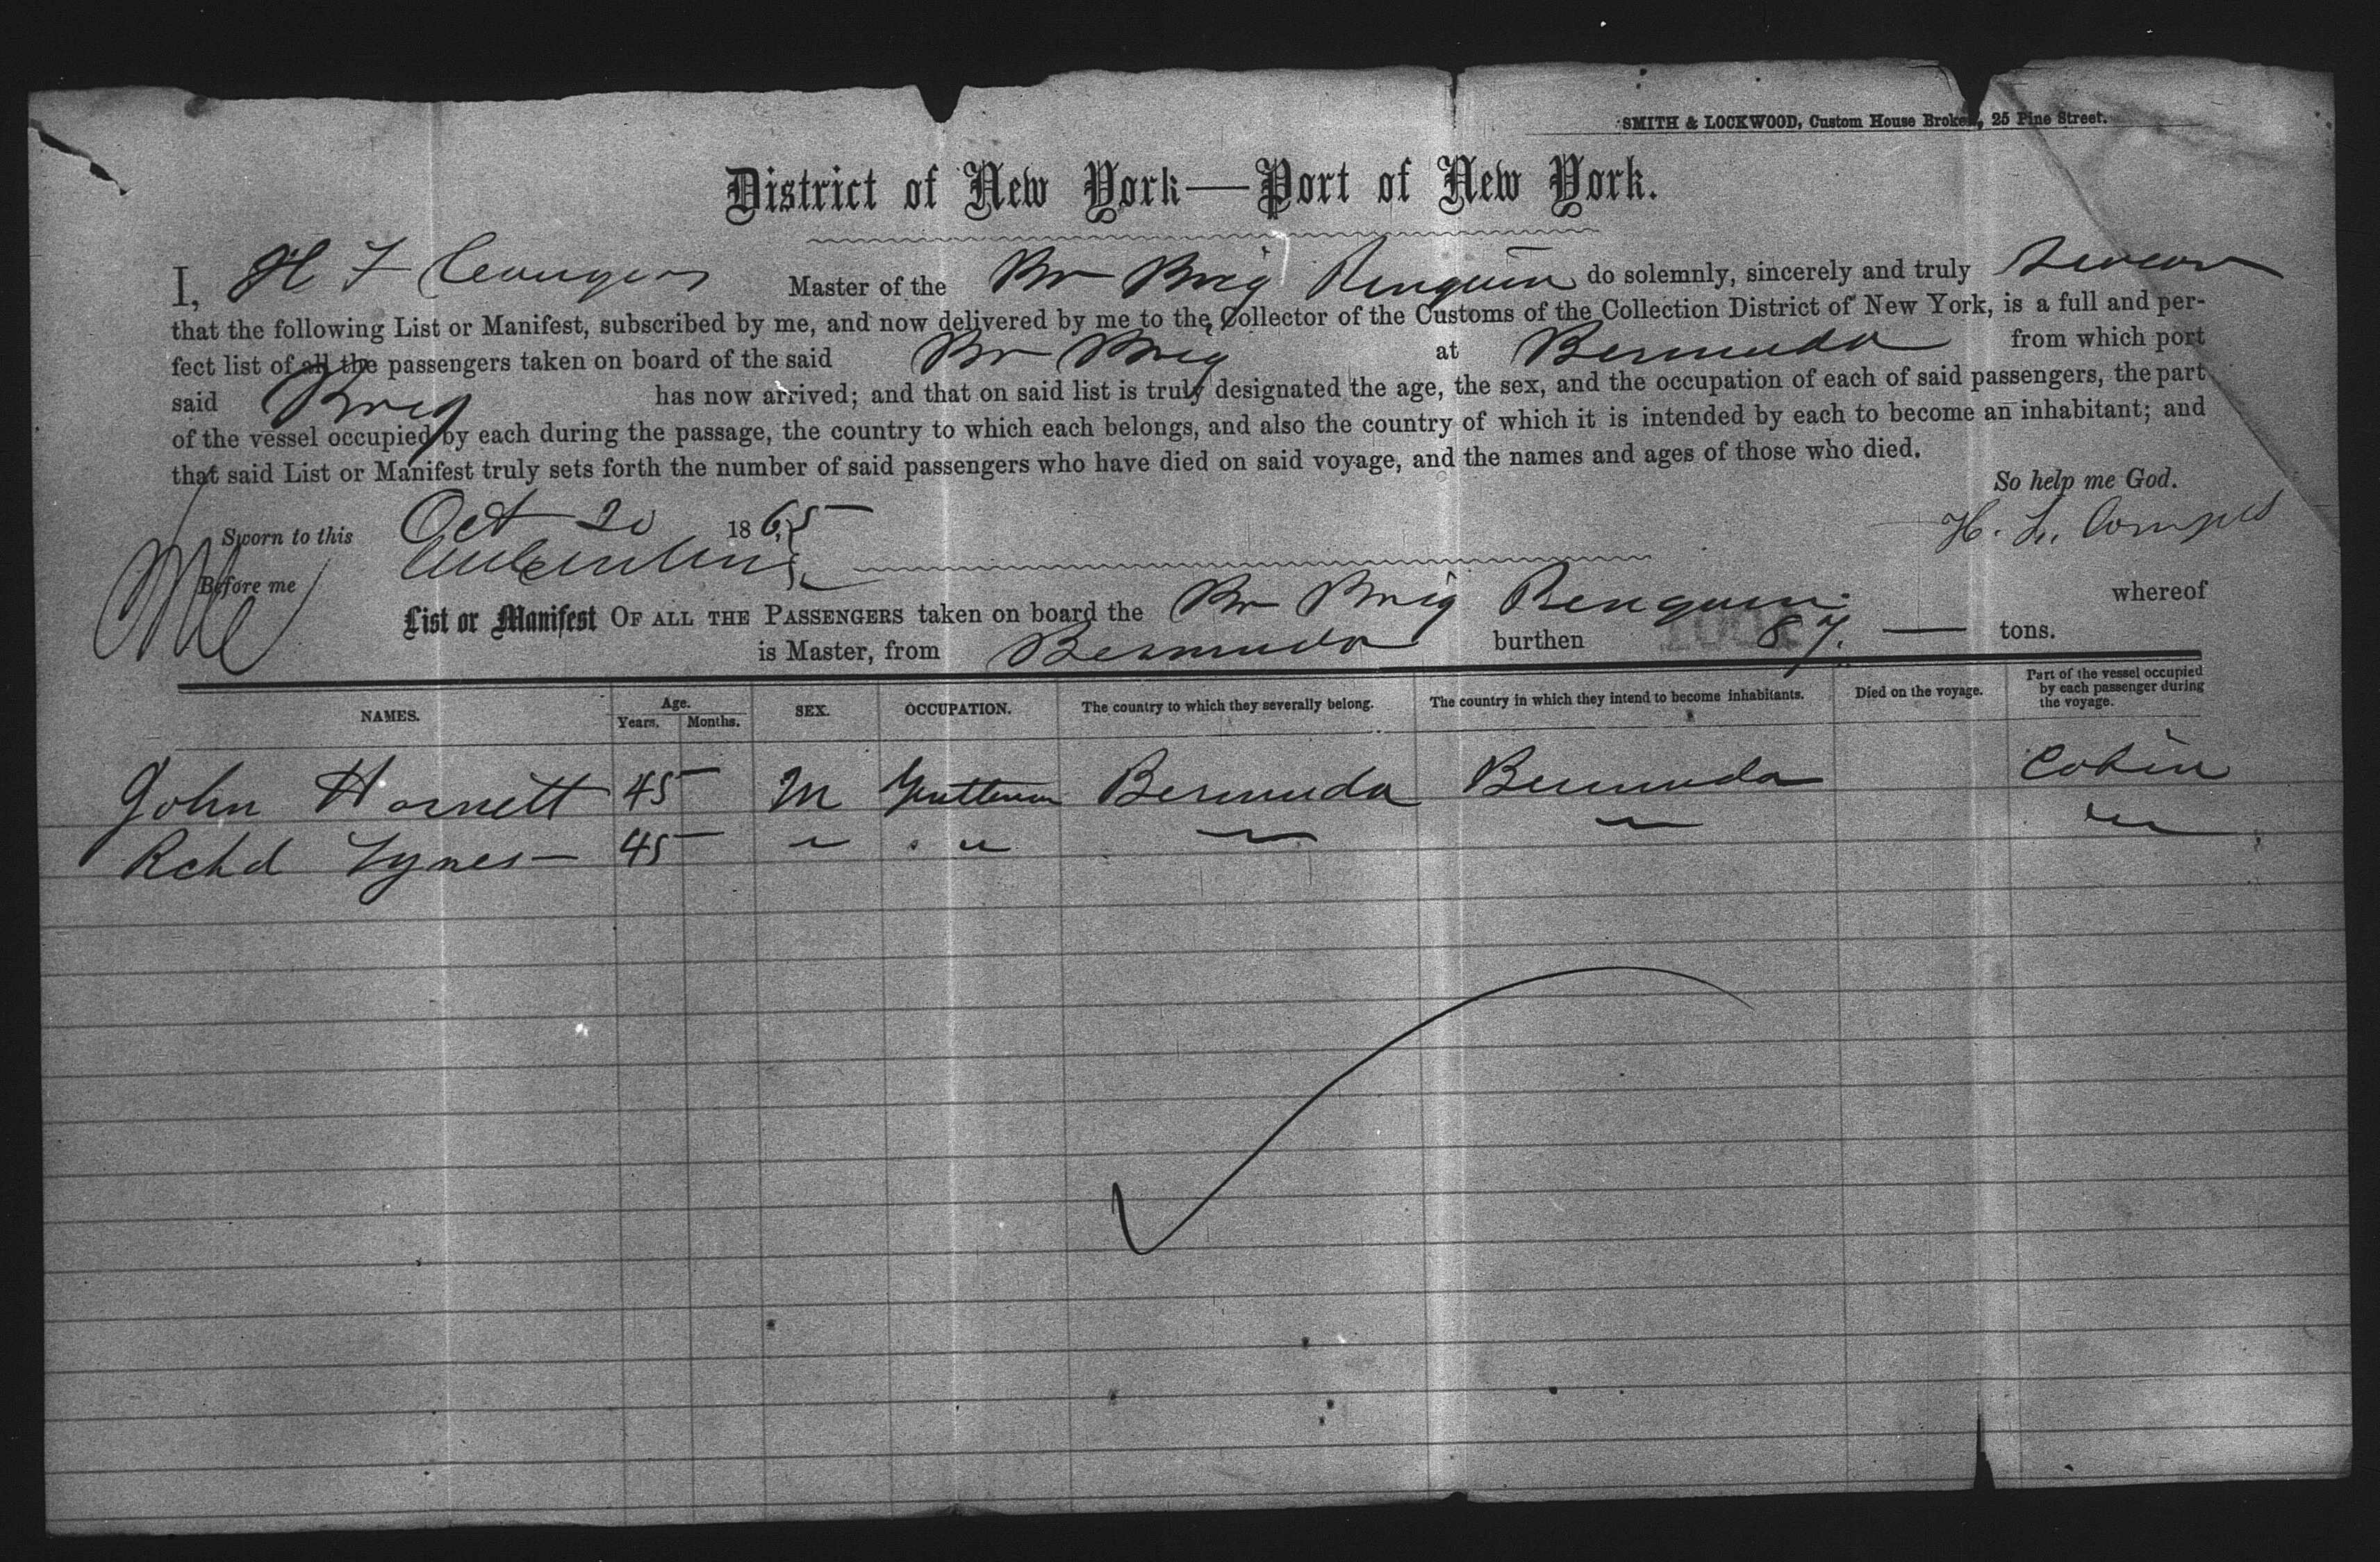 SMITH & LOCKWOOD, Custom House Broker, 25 Pine Street.
District of New York—Port of New York.
I, H F Master of the Br Brig Penguin do solemnly, sincerely and truly swear
that the following List or Manifest, subscribed by me, and now delivered by me to the Collector of the Customs of the Collection District of New York, is a full and per-
fect list of all the passengers taken on board of the said Br Brig at Bermuda from which port
said Brig has now arrived; and that on said list is truly designated the age, the sex, and the occupation of each of said passengers, the part
of the vessel occupied by each during the passage, the country to which each belongs, and also the country of which it is intended by each to become an inhabitant; and
that said List or Manifest truly sets forth the number of said passengers who have died on said voyage, and the names and ages of those who died.
So help me God.
Sworn to this Oct 20 1865
H.
Before me
List or Manifest OF ALL THE PASSENGERS taken on board the Br Brig Penguin whereof
is Master, from Bermuda burthen 87. — tons.
NAMES. Age. Years. Months. SEX. OCCUPATION. The country to which they severally belong. The country in which they intend to become inhabitants. Died on the voyage. Part of the vessel occupied by each passenger during the voyage.
John Harnett 45 — M Gentleman Bermuda Bermuda Cabin
Rchd Tynes — 45 — " " " " "